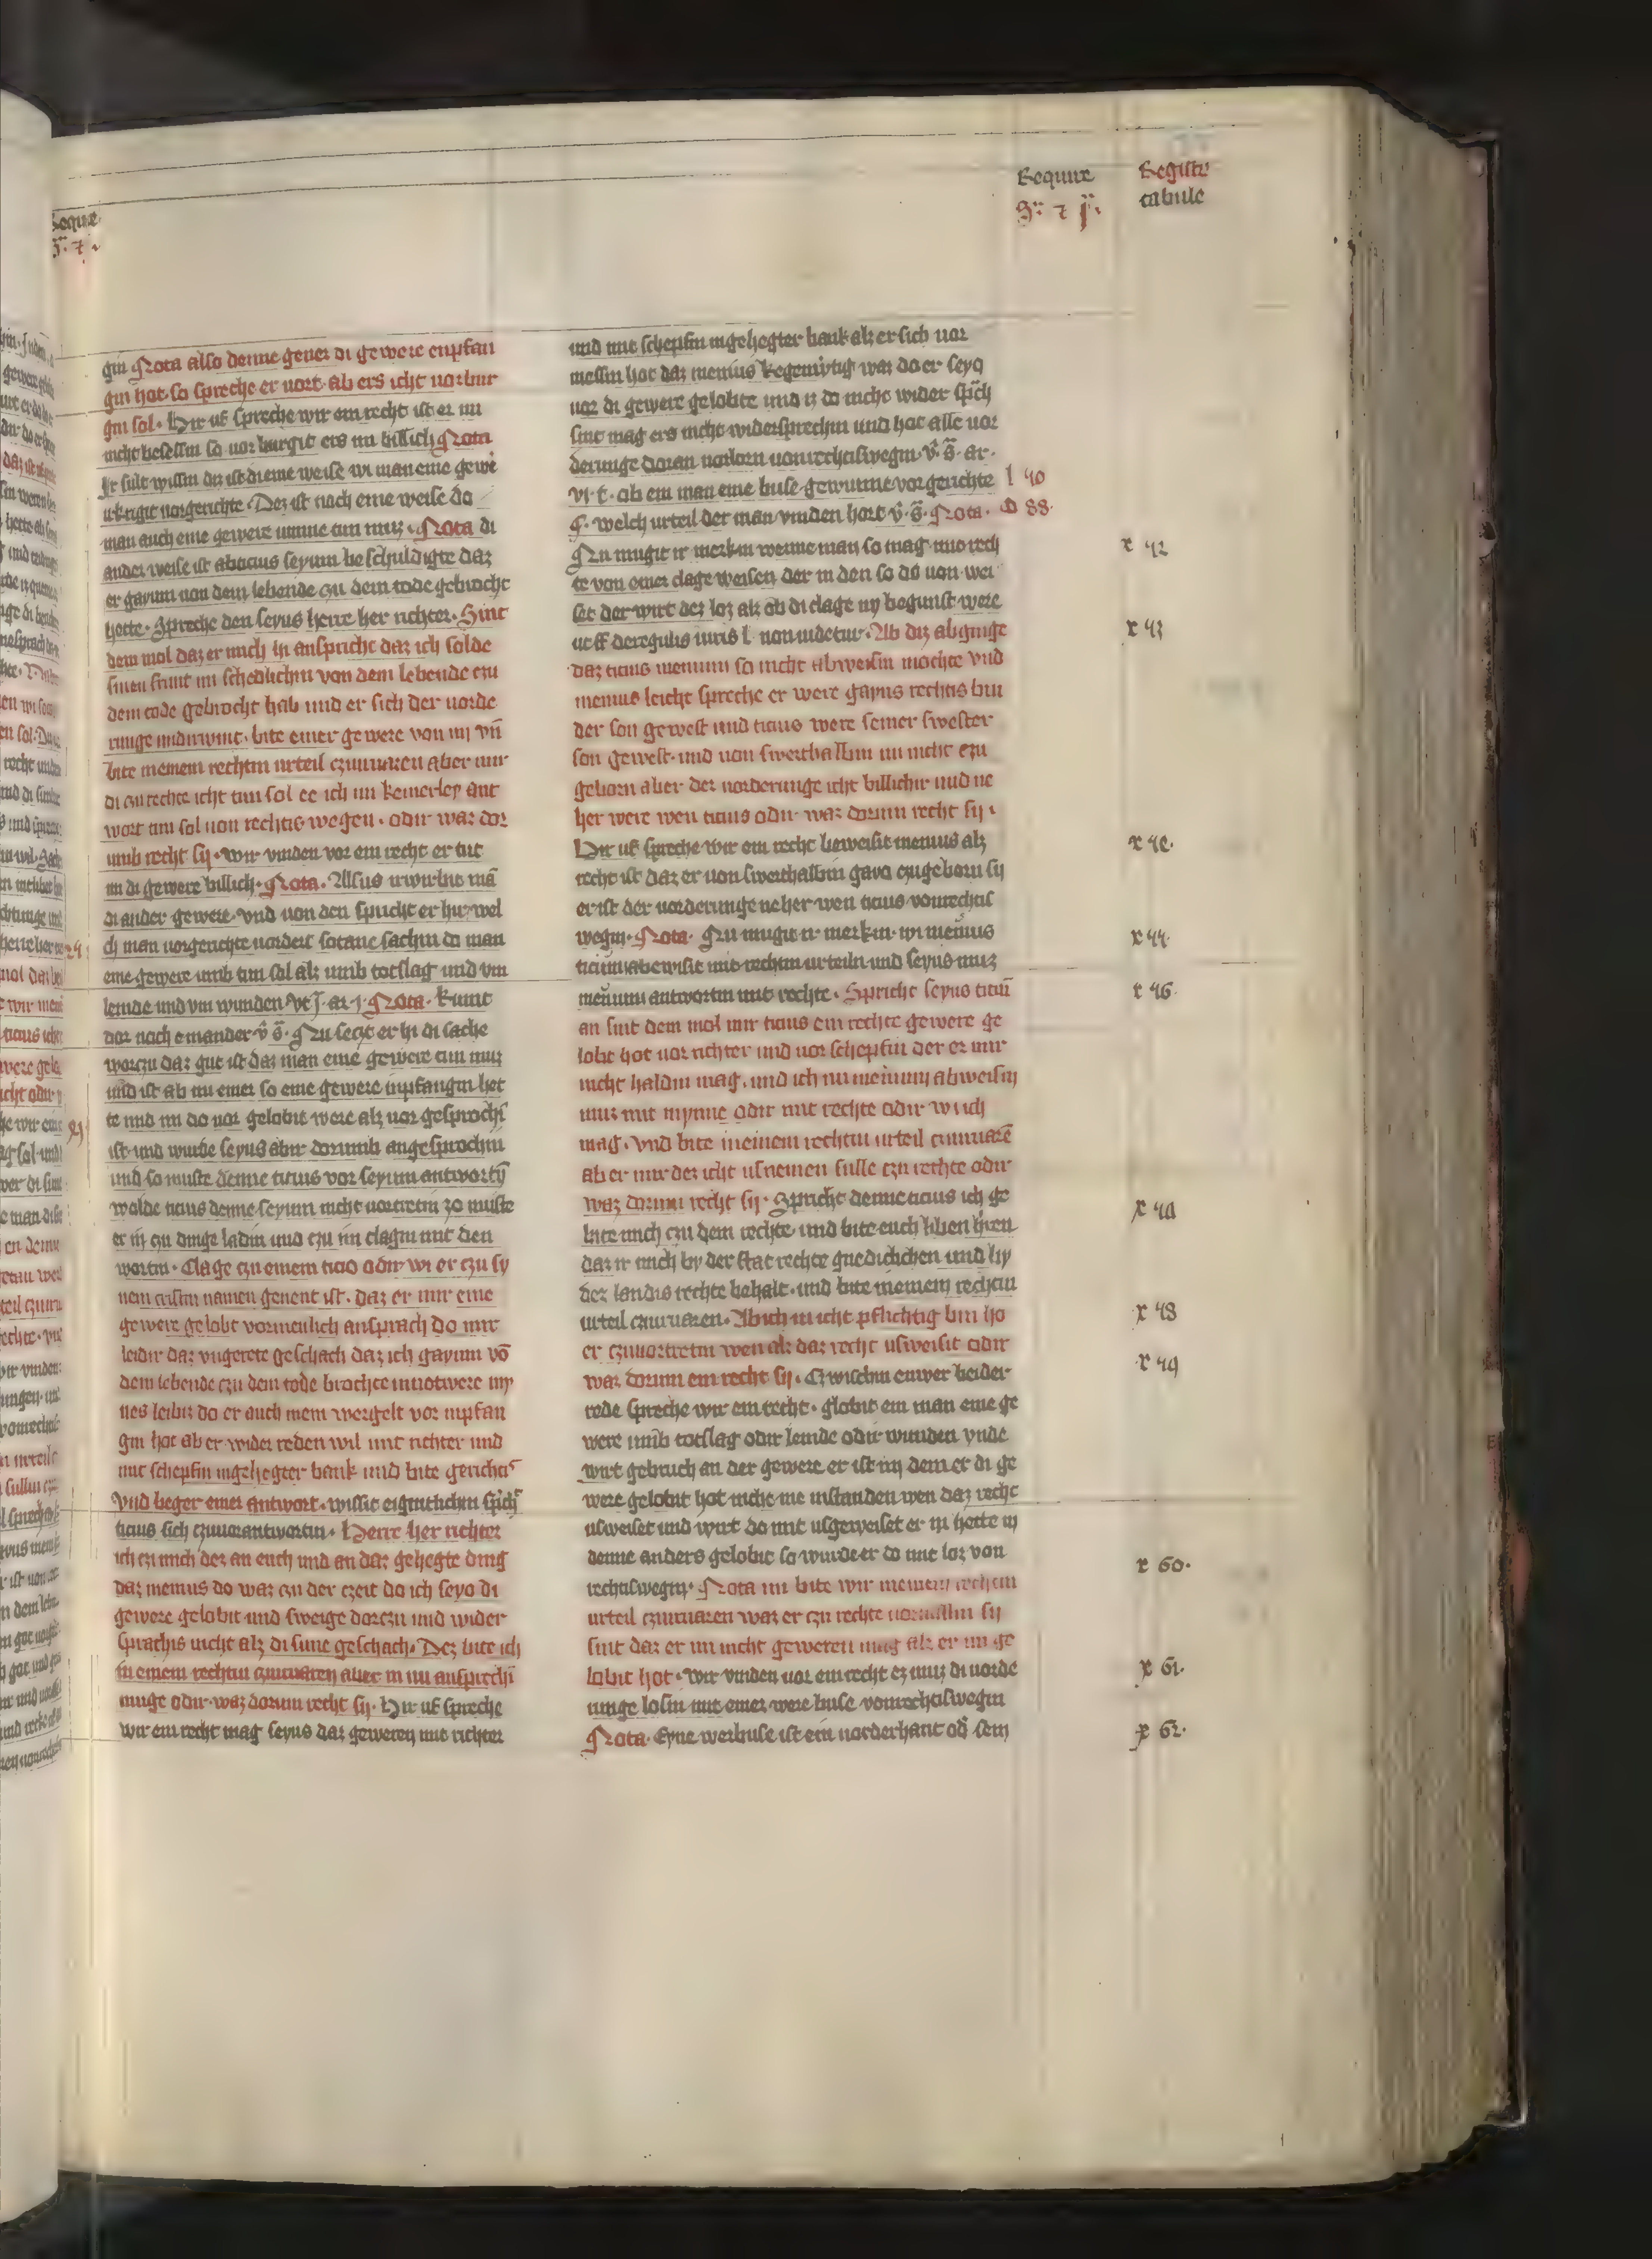 Require
Registrum
tabule
gin Nota also denne gener di gewere enpfan
gin hot so spreche er vort ab ers icht vorbur
gin sol. Hir uf spreche wir ein recht ist er im
nicht besessin so vorburgit ers im billich Nota
Ir sult wissin diz ist di eine weise wi man eine gewe
urkrigit vorgerichte. Dez ist noch eine weise do
man auch eine gewere umme tun muz. Nota di
ander weise ist ab actius seyum beschuldigte daz
er gayum von dem lebende czu dem tode gebrocht
hette. Spreche den seyus herre her richter. Sint
dem mol daz er mich in ansprache daz ich solde
sinen frunt im schedlichin von dem lebende czu
dem tode gebrocht hab und er sich der vorde
runge undirwint. bite einer gewere von im vn̄
bite meinem rechtin urteil czuuaren aber mir
di czu rechte icht tun sol ee ich im keinerley ant
wort tun sol von rechtis wegen. odir waz dor
umb recht sij. Wir vinden vor ein recht er tut
im di gewere billich. Nota. Alsus irwirbit mā
di ander gewere. Vnd von den spricht er hir. wel
ch man vorgerichte vordert sotane sachin do man
eine gewere umb tun sol alz umb totslag und vm
lemde und vm wunden vt ar. Nota. kumt
dor noch e mander v̄ s̄. Nu seczt er hi di sache
worczu daz gut ist daz man eine gewere tun muz
und ist ab im einer so eine gewere inpfangin het
te und im do vor gelobit were alz vor gesprochī
ist und wurde seyus abir dorumb angesprochin
und so muste denne ticius vor seyum antwortȳ
wolde ticius denne seyum nicht vortretin zo muste
er in czu dinge ladin und czu im clagin mit den
wortin. Clage czu einem ticio odir wi er czu sy
nem cristin namen genent ist. daz er mir eine
gewere gelobt vormenlich ansprach do mir
leidir daz vngerete geschach daz ich gayum vō
dem lebende czu dem tode brochte in notwere my
nes leibiz do er auch mein wergelt vor inpfan
gin hot ab er wider reden wil mit richter und
mit schepfin ingehegter bank und bite gerichtis
Vnd beger einer antwort. wissit eigintlichin sprich
ticius sich czuuorantwortin. Herre her richter
ich czi mich dez an euch und an daz gehegte ding
daz menius do waz czu der czeit do ich seyo di
gewere gelobit und sweige dorczu und wider
sprachis nicht alz di sune geschach. Dez bite ich
in einem rechtin czuuaren aber in im ansprechī
muge odir waz dorum recht sij. Hir uf spreche
wir ein recht mag seyus daz geweren mit richter
und mit schepfin ingehegter bank alz er sich vor
messin hot daz menius kegenwrtig waz do er seyo
vor di gewere gelobite und iz do nicht wider sprch
sint mag ers nicht widersprechin und hot alle vor
derunge doran vorlorn von rechtiswegin. v̄. s̄. ar.
vi. t. ab ein man eine buse gewunne vorgerichte l 40
welch urteil der man vinden hort v̄. s̄. Nota. D 88.
Nu mugit ir merkin wenne man so mag mit rech r 42
te von einer clage weisen der in den so do von wei
set der wirt dez loz alz ob di clage ny begunst were
ut ff de regulis iuris l non videtur. Ab diz abginge r 43
daz ticius menium so nicht abweisin mochte vnd
menius leicht spreche er were gayus rechtis bru
der son gewest und ticius were seiner swester
son gewest. und von swerthalbin im nicht czu
geborn aber der vorderunge icht billichir und ne
her were wen ticius odir waz dorum recht sij.
Hir uf spreche wir ein recht beweisit menius alz
recht ist daz er von swerthalbin gayo czugeborn sij
er ist der vorderunge neher wen ticius von rechtis
wegin. Nota. Nu mugit ir merkin wi menius r 44
ticium abewisit mit rechtin urteiln und seyus muz
menium antwortin mit rechte. Spricht seyus ticiū r 46
an sint dem mol mir ticius ein rechte gewere ge
lobit hot vor richter und vor schepfin der er mir
nicht haldin mag. und ich nu menium abweisin
muz mit mynne odir mit rechte odir wi ich
mag. Vnd bite meinem rechtin urteil czuuarē
ab er mir dez icht usnemen sulle czu rechte odir
waz dorum recht sij. Spricht denne ticius ich ge
bite mich czu dem rechte. und bite euch liben heren
daz ir mich by der stat rechte gnediclichen und by
dez landis rechte behalt. und bite meinem rechtin
urteil czuuaren. Ab ich im icht pflichtig bin ho r 48
er czuuortretin wen alz daz recht usweisit odir
waz dorum ein recht sij. Czwischin euwer beider r 49
rede spreche wir ein recht. globit ein man eine ge
were umb totslag odir lemde odir wunden vnde
wirt gebruch an der gewere er ist im dem er di ge
were gelobit hot nicht me instanden wen daz recht
usweiset und wirt do mit usgeweiset er in hette in
denne anders gelobit so wurde er do mit loz von
rechtiswegin. Nota nu bite wir meinem rechtin r 60.
urteil czuuaren waz er czu rechte vorvallin sij
sint daz er im nicht geweren mag alz er im ge
lobit hot. Wir vinden vor ein recht ez muz di vorde r 61.
runge losin mit einer were buse von rechtiswegin
Nota. Eyne werbuse ist ein vorderhant od̄ sein r 62.